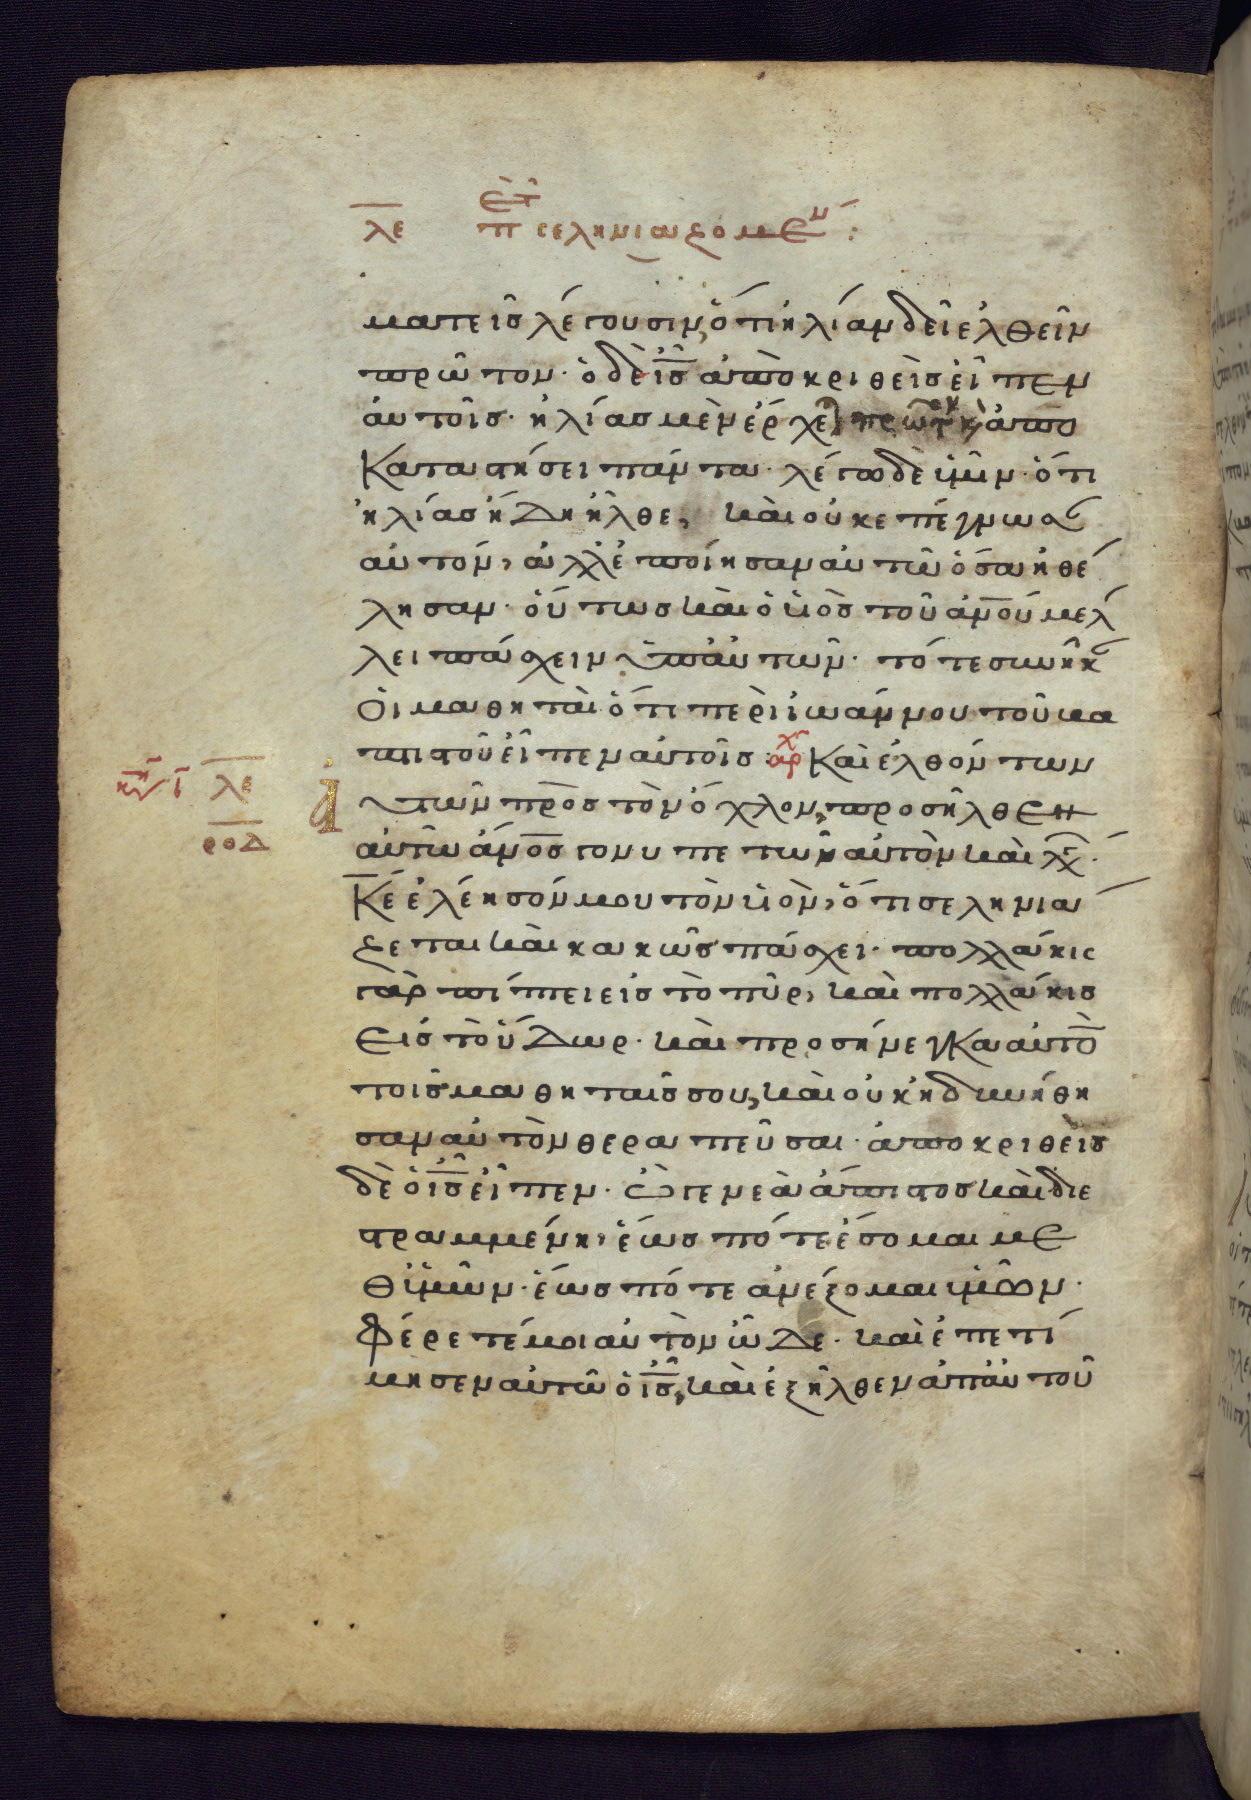 λε περι τ σεληνιαζομεν :
ματεῖς λέγουσιν, ὅτι ἠλίαν δεῖ ἐλθεῖν
πρῶτον· ὁ δὲ ι̅ς̅ ἀποκριθεὶς εἶπεν
αὐτοῖς· ἠλίας μὲν ἔρχεται πρῶτον κ(αὶ) ἀπο
καταστήσει πάντα· λέγω δὲ ὑμῖν· ὅτι
ἠλίας ἤδη ἦλθε, καὶ οὐκ ἐπέγνωσ
αὐτόν, ἀλλ' ἐποίησαν αὐτῶ ὅσα ἠθέ
λησαν· οὕτως καὶ ὁ υἱὸς τοῦ α̅ν̅ο̅υ̅ μέλ
λει πάσχειν ὑπ' αὐτῶν· τότε συνῆκ
οἱ μαθηταὶ ὅτι περὶ ἰωάννου τοῦ βα
πτιστοῦ εἶπεν αὐτοῖς· αρχ Καὶ ἐλθόντων
λε
αὐτῶν πρὸς τὸν ὄχλον, προσῆλθεν
ροδ
αὐτῶ α̅ν̅ο̅ς̅ γονυπετῶν αὐτὸν καὶ λ̅γ̅·
Κ̅ε̅ ἐλέησόν μου τὸν υἱὸν, ὅτι σεληνιά
ζεται καὶ κακῶς πάσχει· πολλάκις
γὰρ πίπτει εἰς τὸ πῦρ, καὶ πολλάκις
εἰς τὸ ὕδωρ· καὶ προσήνεγκα αὐτὸ
τοῖς μαθηταῖς σου, καὶ οὐκ ἠδυνήθη
σαν αὐτὸν θεραπεῦσαι· ἀποκριθεὶς
δὲ ὁ ι̅ς̅ εἶπεν· ὦ γενεὰ ἄπιστος καὶ διε
στραμμένη, ἕως πότε ἔσομαι με
θ' ὑμῶν· ἕως πότε ἀνέξομαι ὑμῶν·
Φέρετέ μοι αὐτὸν ὧδε· καὶ ἐπετί
μησεν αὐτῶ ὁ ι̅ς̅, καὶ ἐξῆλθεν ἀπ' αὐτοῦ